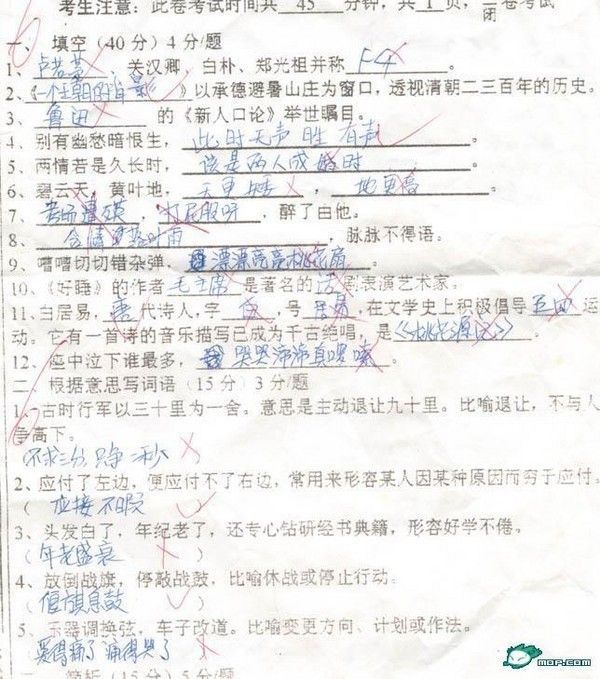 考生注意：此卷考试时间共 45 分钟，共 1 页，闭卷考试
一、填空（40分）4分/题
1、卢若蒙，关汉卿，白朴、郑光祖并称 F4 。
2、《一个王朝的背影》以承德避暑山庄为窗口，透视清朝二三百年的历史。
3、鲁迅 的《新人口论》举世瞩目。
4、别有幽愁暗恨生， 此时无声胜有声 。
5、两情若是久长时， 该是两人成婚时 。
6、碧云天，黄叶地， 天更 ， 地更 。
7、 ，打屁股呀 ，醉了由他。
8、 含情 ，脉脉不得语。
9、嘈嘈切切错杂弹， 漂漂亮亮 。
10、《好睡》的作者 毛主席 是著名的 话 剧表演艺术家。
11、白居易， 唐 代诗人，字 白 ，号 居易 ，在文学史上积极倡导 五四 运
动。它有一首诗的音乐描写已成为千古绝唱，是《桃花源记》 。
12、座中泣下谁最多， 哭哭沛沛真啰嗦 。
二、根据意思写词语（15分）3分/题
1、古时行军以三十里为一舍。意思是主动退让九十里。比喻退让，不与人
争高下。
（不求三分 只争 秒
2、应付了左边，便应付不了右边，常用来形容某人因某种原因而穷于应付。
（ 应接不暇 ）
3、头发白了，年纪老了，还专心钻研经书典籍，形容好学不倦。
（年老盛衰 ）
4、放倒战旗，停敲战鼓，比喻休战或停止行动。
（偃旗息鼓 ）
5、乐器调换弦，车子改道。比喻变更方向、计划或作法。
爱得痛了 痛得哭了
简析（15分）5分/题
MOP.COM